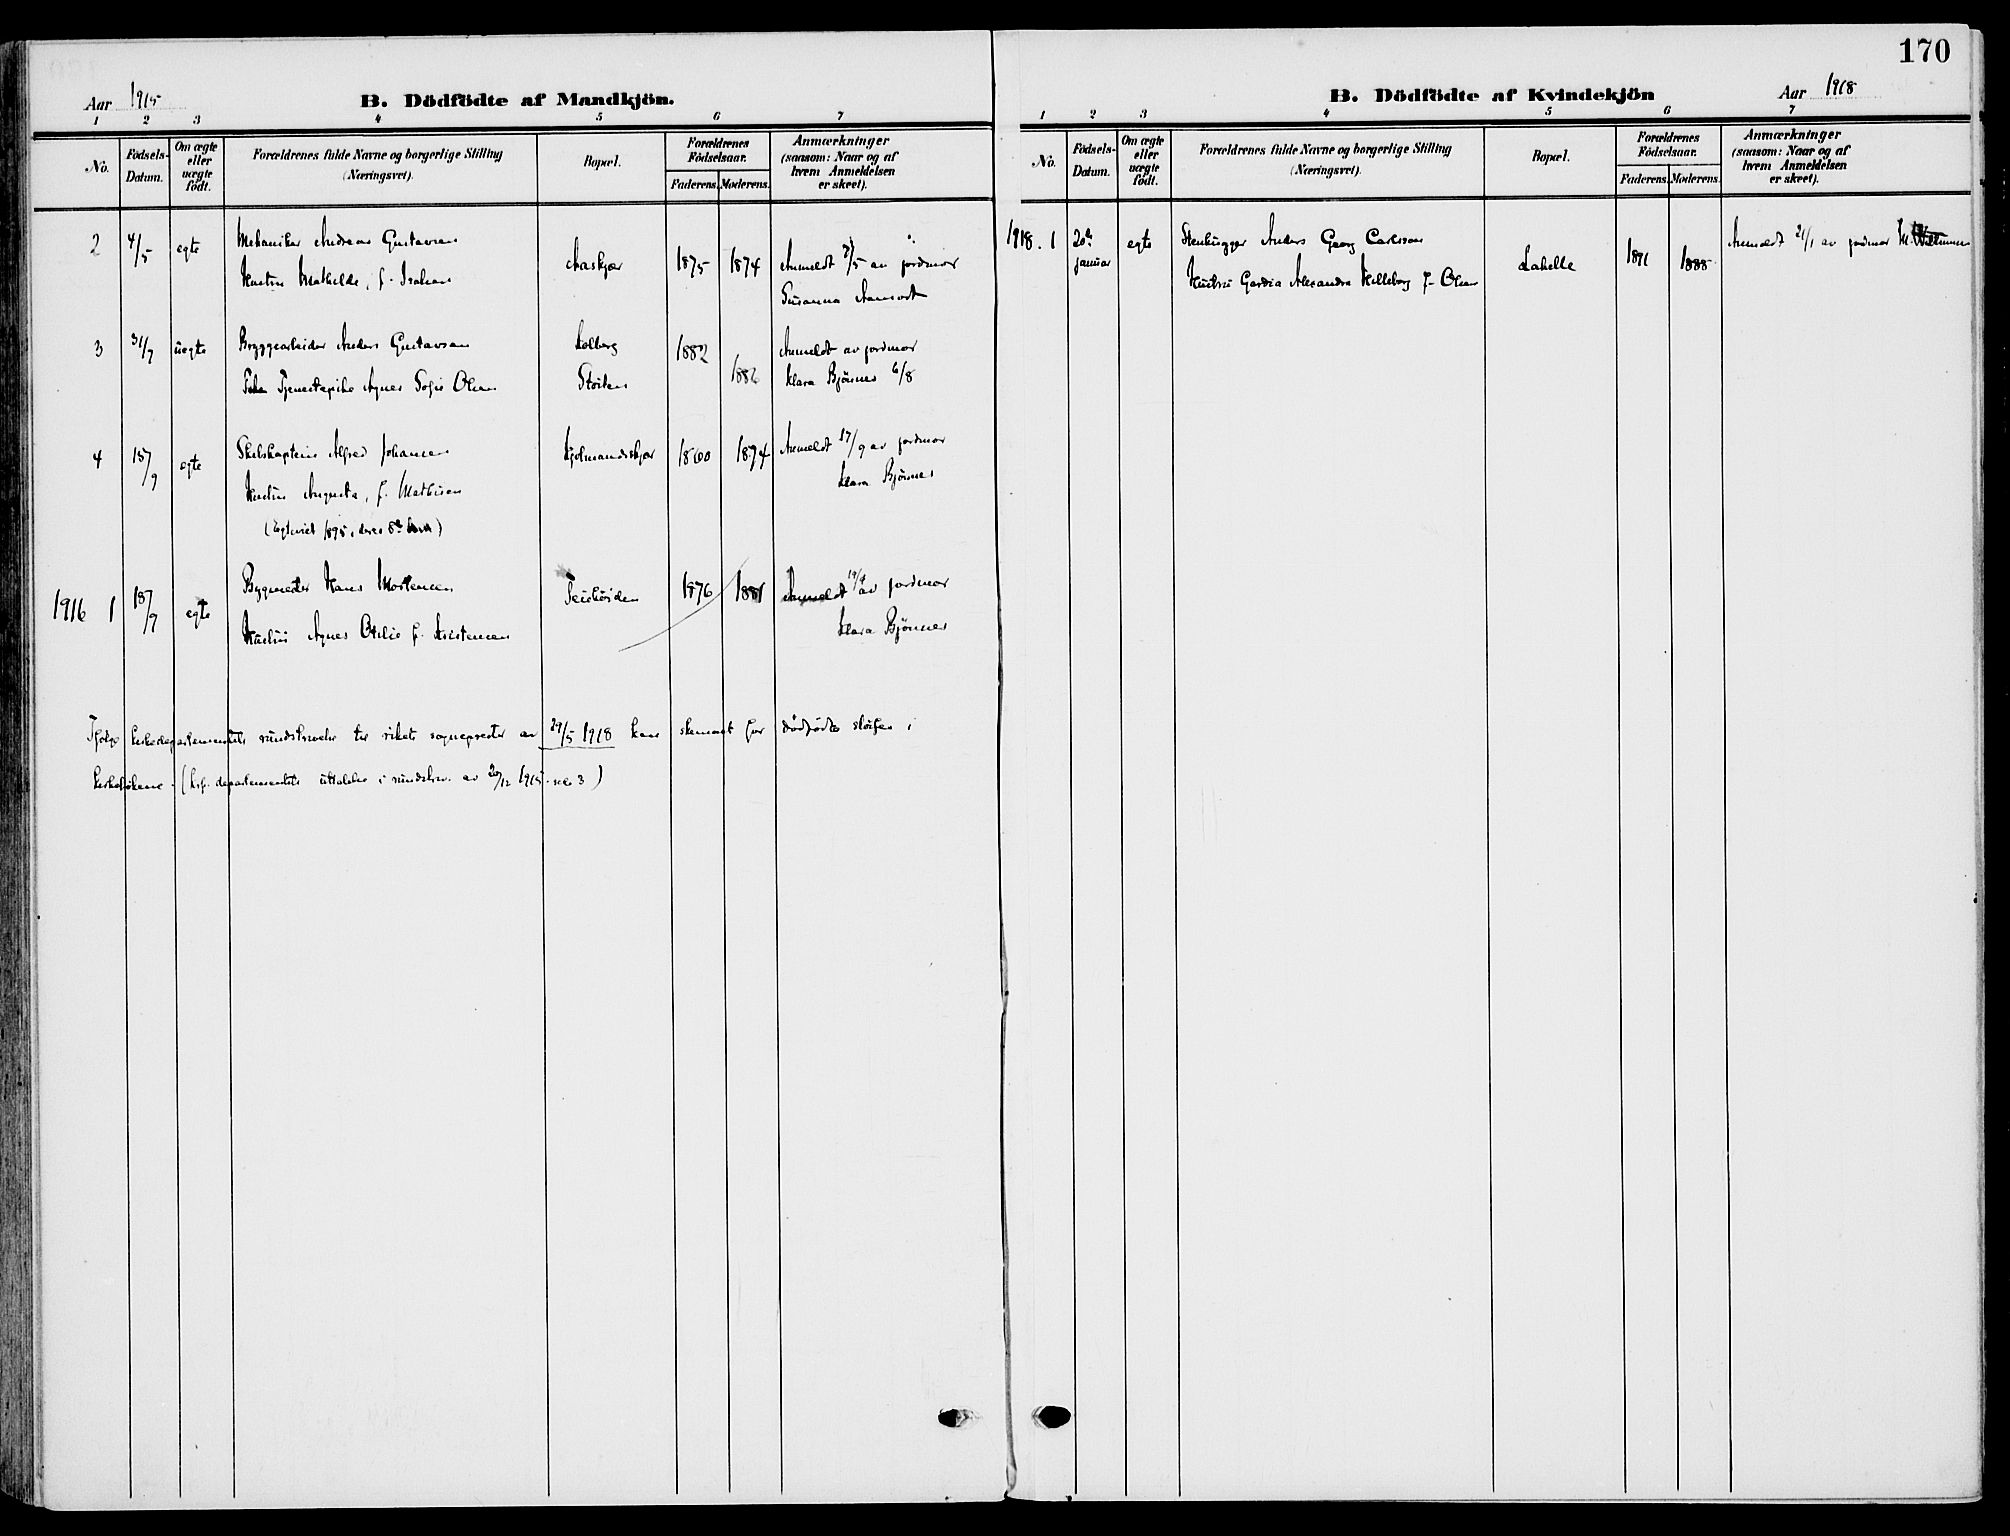 170
Aar 1915
B. Dödfödte af Mandkjön.
1 2 3 4 5 6 7
No.
Födsels-Datum.
Om ægte eller uægte födt.
Forældrenes fulde Navne og borgerlige Stilling (Næringsvei).
Bopæl.
Forældrenes Födselsaar.
Faderens. Moderens.
Anmærkninger (saasom: Naar og af hvem Anmeldelsen er skeet).
2 4/5 egte Mekaniker Andreas Gustavsen
Hustru Mathilde, f. Isaksen
Aaskjær 1875 1874 Anmeldt /5 av jordmor
Susanna Aamodt
3 31/7 uegte Bryggearbeider Anders Gustavsen
Tjenestepike Agnes Sofie Olsen
Solberg
Støiten
1882
1882
Anmeldt av jordmor
Klara Bjönnes 6/8
4 15/9 egte Skibskaptein Alfred Johansen
Hustru Augusta, f. Mathisen
(Egteviet 1895, deres 8de barn)
1860 1874 Anmeldt 17/9 av jordmor
Klara Bjönnes
1916 1 15/7 egte Bygmester Hans Mortensen
Hustru Agnes Otilie f. Kristensen
1876 1881 Anmeldt 19/9 av jordmor
Klara Bjönnes
Ifølge kirkedepartementets rundskrivelse til rikets sogneprester av 29/5 1918 kan skemaet for dödfödte sløifes i
kirkebökene. (kfr. departementets uttalelse i rundskr. av 20/12 1915 side 3)
B. Dödfödte af Kvindekjön
Aar 1918
1 2 3 4 5 6 7
No.
Födsels-Datum.
Om ægte eller uægte födt.
Forældrenes fulde Navne og borgerlige Stilling (Næringsvei).
Bopæl.
Forældrenes Födselsaar.
Faderens. Moderens.
Anmærkninger (saasom: Naar og af hvem Anmeldelsen er skeet).
1918. 1 20de januar egte Stenhugger Anders Georg Carlsson
Hustru Alexandra Hilleborg f. Olsen
Lahelle 1891 1888 Anmeldt 21/1 av jordmor